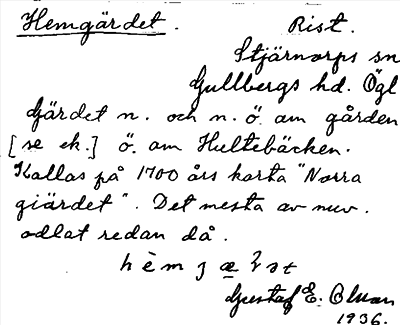 Hemgärdet. Rist.
Stjärnorps sn
Gullbergs hd. Ögl
Gärdet n. och n.ö. om gården
[se ek.] ö. om Hultebäcken.
Kallas på 1700 års karta "Norra
giärdet". Det mesta av nuv.
odlat redan då.
Gustaf E:
1936.